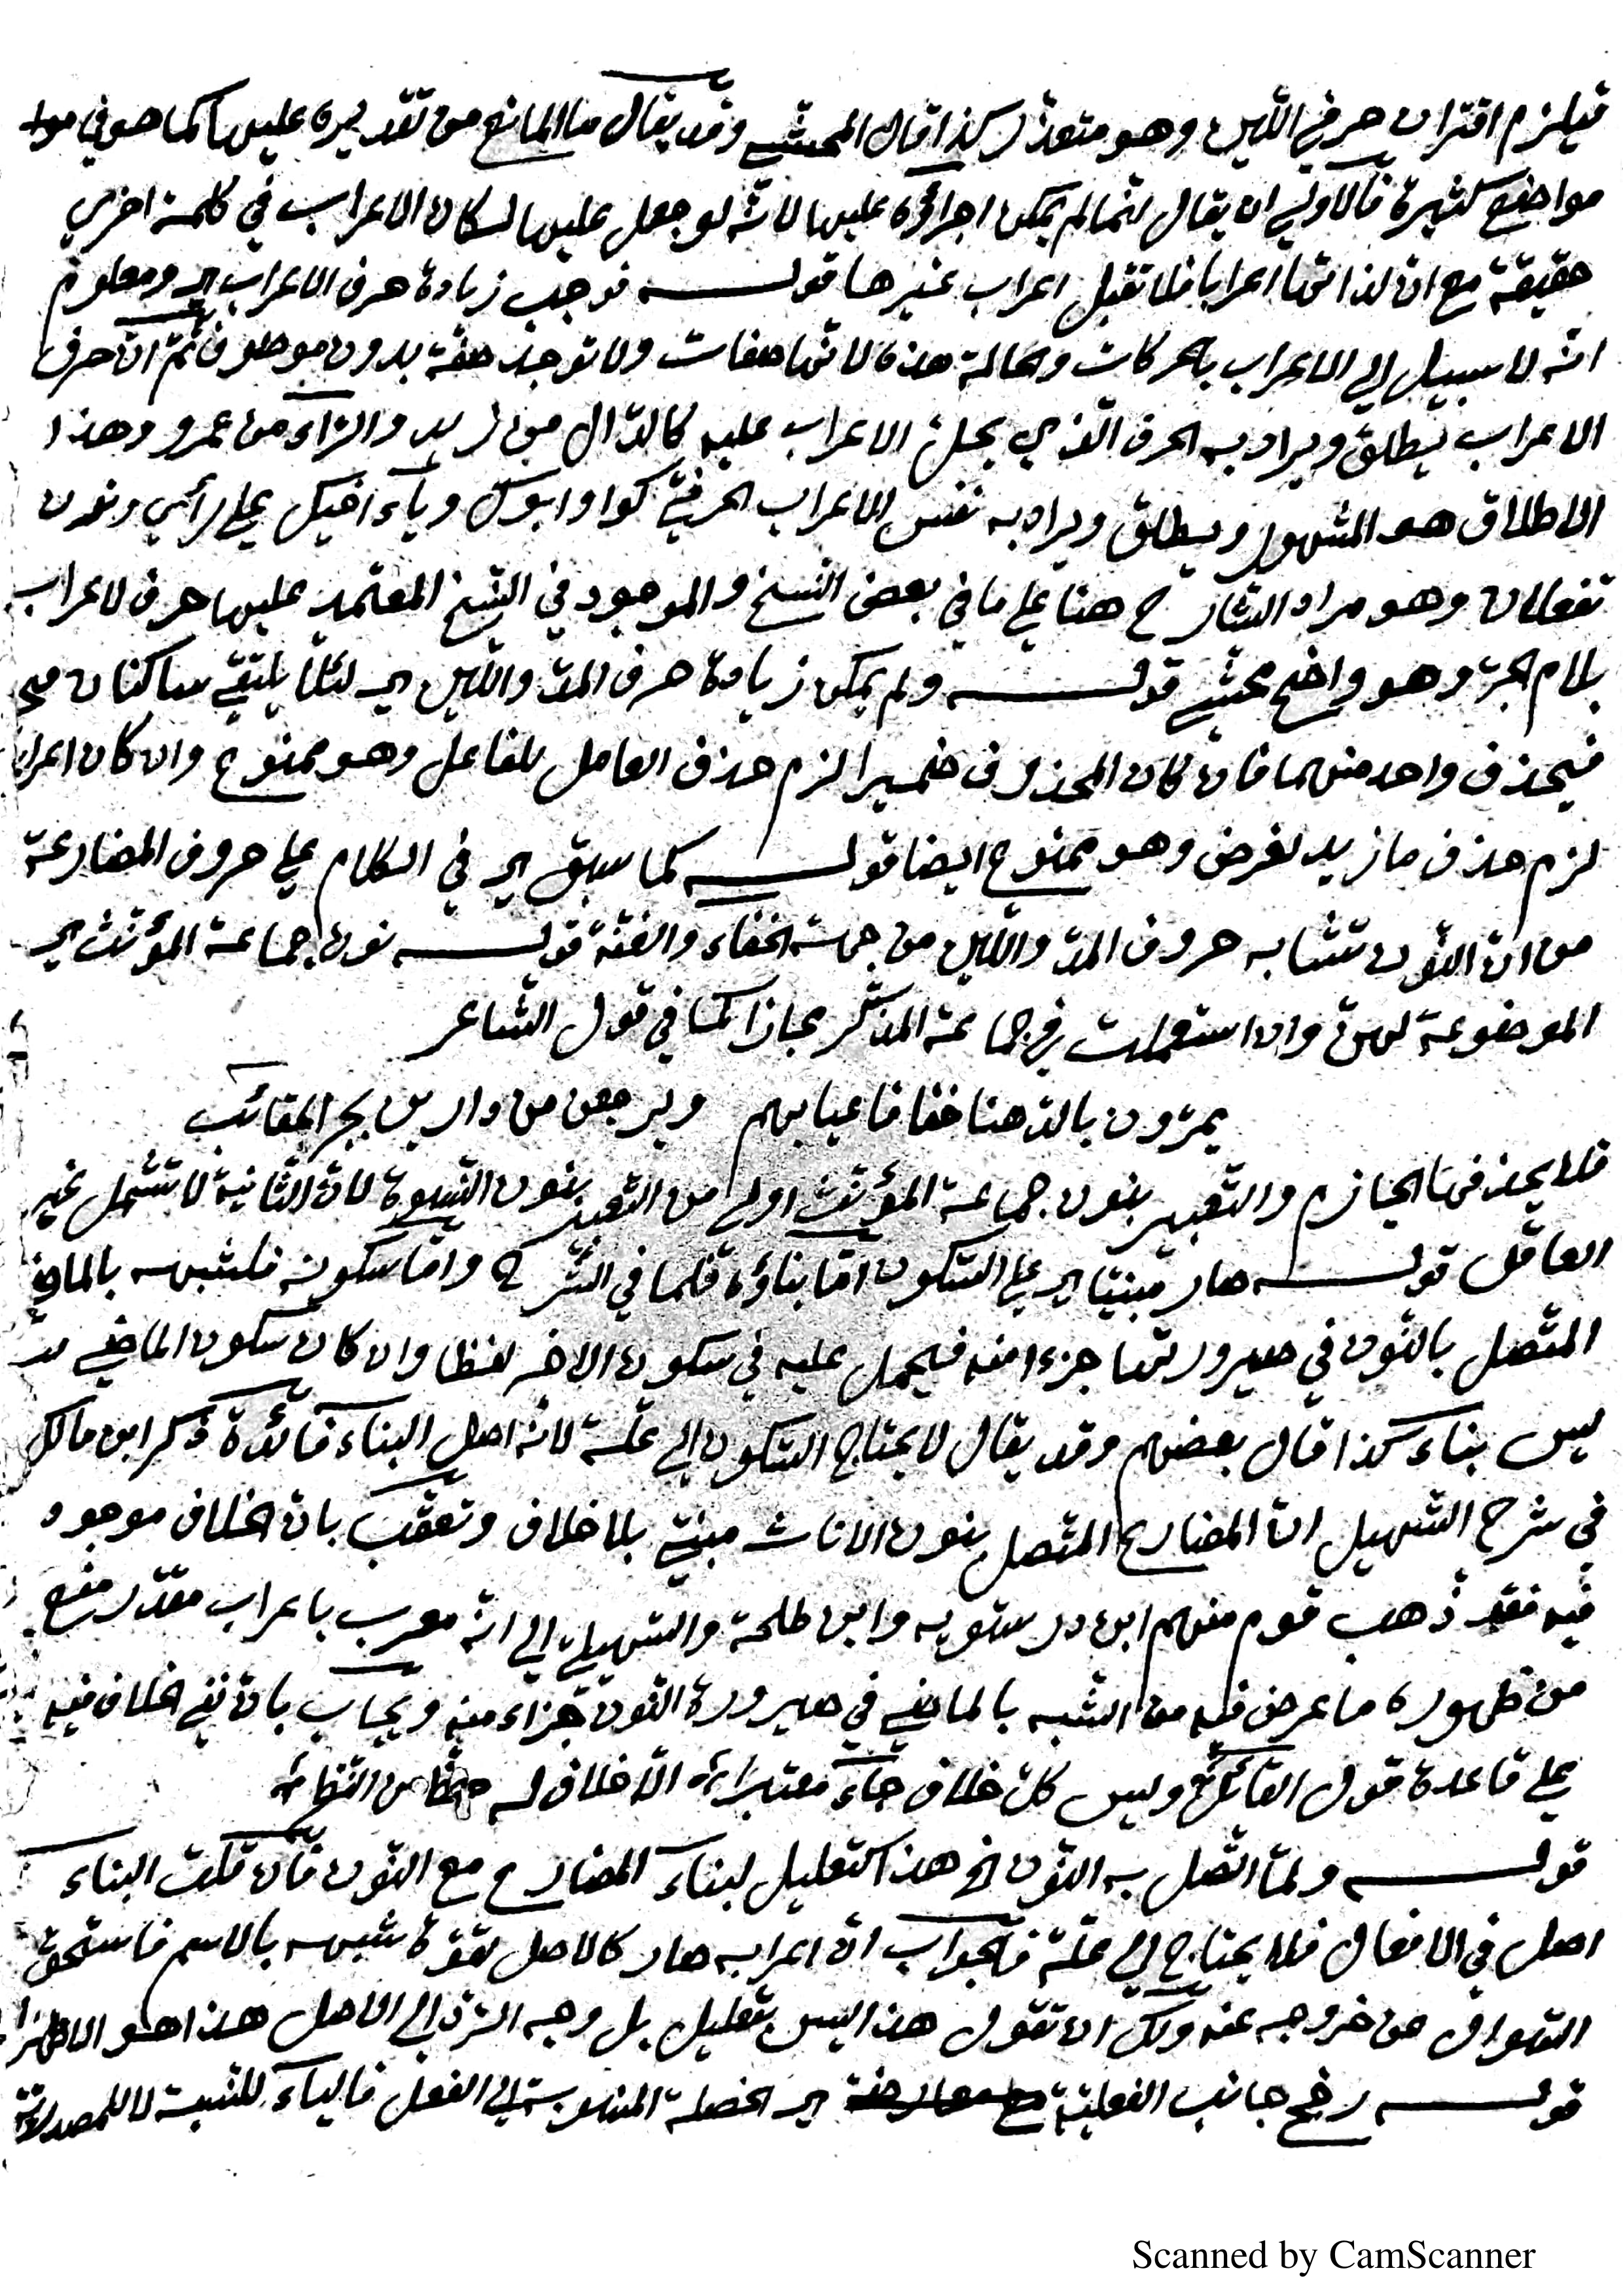 فيلزم اقتران حرفي اللين وهو متعذر كذا قال المحشي وقد يقال ما المانع من تقديره عليها كما هو في موا
مواضع كثيرة فالاولي ان يقال انما لم يمكن اجراؤه عليها لانه لو جعل عليها لكان الاعراب في كلمة اخري
حقيقة مع ان لذاتها اعرابا فلا تقبل اعراب غيرها قوله فوجب زيادة حرف الاعراب اي ومعلوم
انه لا سبيل الي الاعراب بالحركات والحالة هذه لانها صفات ولا توجد صفة بدون موصوف ثم ان حرف
الاعراب يطلق ويراد به الحرف الذي يحل الاعراب عليه كالدال من زيد والراء من عمرو وهذا
الاطلاق هو المشهور ويطلق ويراد به نفس الاعراب الحرفي كواو ابوك وياء اخيك علي رأي ونون
تفعلان وهو مراد الشارح هنا علي ما في بعض النسخ والموجود في النسخ المعتمد عليها حرف لاعراب
بلام الجر وهو واضح محشي قوله ولم يمكن زيادة حرف المد واللين اي لئلا يلتقي ساكنان
فيحذف واحد منهما فان كان المحذوف ضميرا لزم حذف العامل للفاعل وهو ممنوع وان كان اعرا
لزم حذف ما زيد لغرض وهو ممنوع ايضا قوله كما سبق اي في الكلام علي حروف المضارعة
من ان النون تشابه حروف المد واللين من جهة الخفاء والغنة قوله نون جماعة المؤنث اي
الموضوعة لهن وان استعملت في جماعة المذكر مجازا كما في قول الشاعر
يمرون بالدهنا خفافا عيابهم ويرجعن من دارين بجر الحقائب
فلا يحذفها الجازم والتعبير بنون جماعة المؤنث اولي من التعبير بنون النسوة لان الثانية لا تشمل غير
العاقل قوله صار مبنيا اي علي السكون اما بناؤه فلما في الشرح واما سكونه فلشبهه بالماضي
المتصل بالنون في صيرورتها جزءا منه فيحمل عليه في سكون الاخر لفظا وان كان سكون الماضي
ليس بناء كذا قال بعضهم وقد يقال لا يحتاج السكون الي علة لانه اصل البناء فائدة ذكر ابن مالك
في شرح التسهيل ان المضارع المتصل بنون الاناث مبني بلا خلاف وتعقب بان الخلاف موجود
فيه فقد ذهب قوم منهم ابن درستويه وابن طلحة والسهيلي الي انه معرب باعراب مقدر منع
من ظهوره ما عرض فيه من الشبه بالماضي في صيرورة النون جزاء منه ويجاب بان نفي الخلاف فيه
علي قاعدة قول القائل وليس كل خلاف جاء معتبرا الا خلاف له حظ من النظر
قوله ولما اتصل به النون الخ هذا كتعليل لبناء المضارع مع النون فان قلت البناء
اصل في الافعال فلا يحتاج الي علة فالجواب ان اعرابه صار كالاصل لقوة شبهه بالاسم فاستحق
السؤال عن خروجه عنه ولك ان تقول هذا ليس بتعليل بل وجه الرد الي الاصل هذا هو الاظهر
قوله رجح جانب الفعلية اي الخصلة المنسوبة الي الفعل فالياء للنسبة لا للمصدرية
Scanned by CamScanner